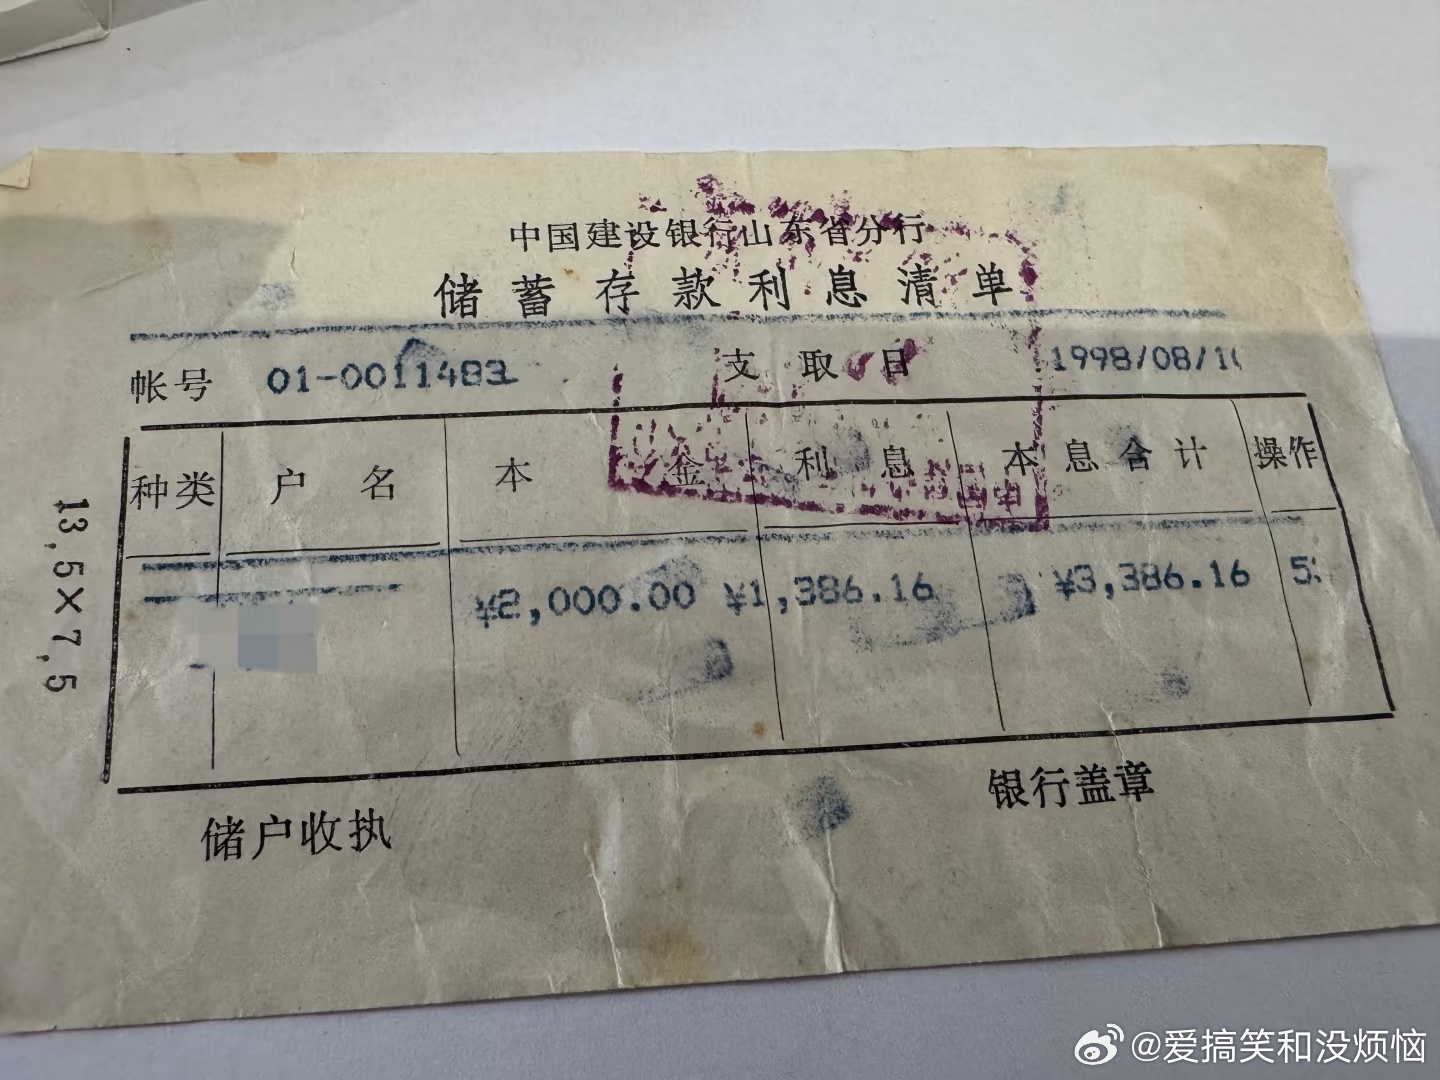 中国建设银行山东省分行
储蓄存款利息清单
帐号 01-0011483 支取日 1998/08/1
种类 户名 本金 利息 本息合计 操作
¥2,000.00 ¥1,386.16 ¥3,386.16 5
储户收执 银行盖章
13.5×7.5
@爱搞笑和没烦恼